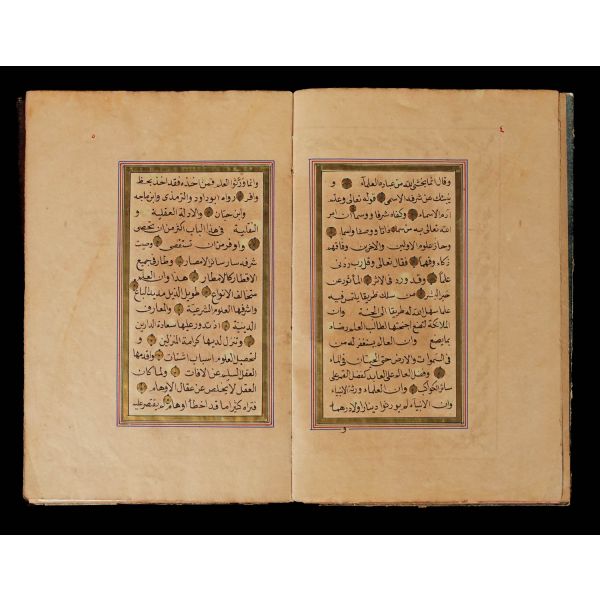 ٤
وقال انما يخشى الله من عباده العلماء و
ينبئك عن شرفه الاسمى قوله تعالى وعلم
ادم الاسماء وكفاه شرفا وسموا ان امر
الله تعالى به من سما ذاتا ووصفا واسما
وحاز علوم الاولين والاخرين وفاقهم
ذكاء وفهما فقال تعالى وقل رب زدنى
علما وقد ورد فى الاثر المأثور عن
خير البشر من سلك طريقا يلتمس فيه
علما سهل الله له طريقا الى الجنة وان
الملائكة لتضع اجنحتها لطالب العلم رضاء
بما يصنع وان العالم يستغفر له من
فى السموات والارض حتى الحيتان فى الماء
وفضل العالم على العابد كفضل القمر على
سائر الكواكب وان العلماء ورثة الانبياء
وان الانبياء لم يورثوا دينارا ولا درهما
و
٥
وانما ورثوا العلم فمن اخذه فقد اخذ بحظ
وافر رواه ابو داود والترمذى وابن ماجه
وابن حبان والادلة العقلية و
النقلية فى هذا الباب اكثر من ان تحصى
واوفر من ان تستقصى وصيت
شرفه سار سائر الامصار وطار فى جميع
الاقطار كالامطار هذا وان العلم
متخالف الانواع طويل الذيل مديد الباع
واشرفها العلوم الشرعية والمعارف
الدينية اذ تدور عليها سعادة الدارين
وتنزل لديها كرامة المنزلين و
لتحصيل العلوم اسباب اشتات واقدمها
العقل السليم عن الافات ولما كان
العقل لا يخلص عن عقال الاوهام
فتراه كثيرا ما قد اخطأ اوهام لم يقتصر عليه